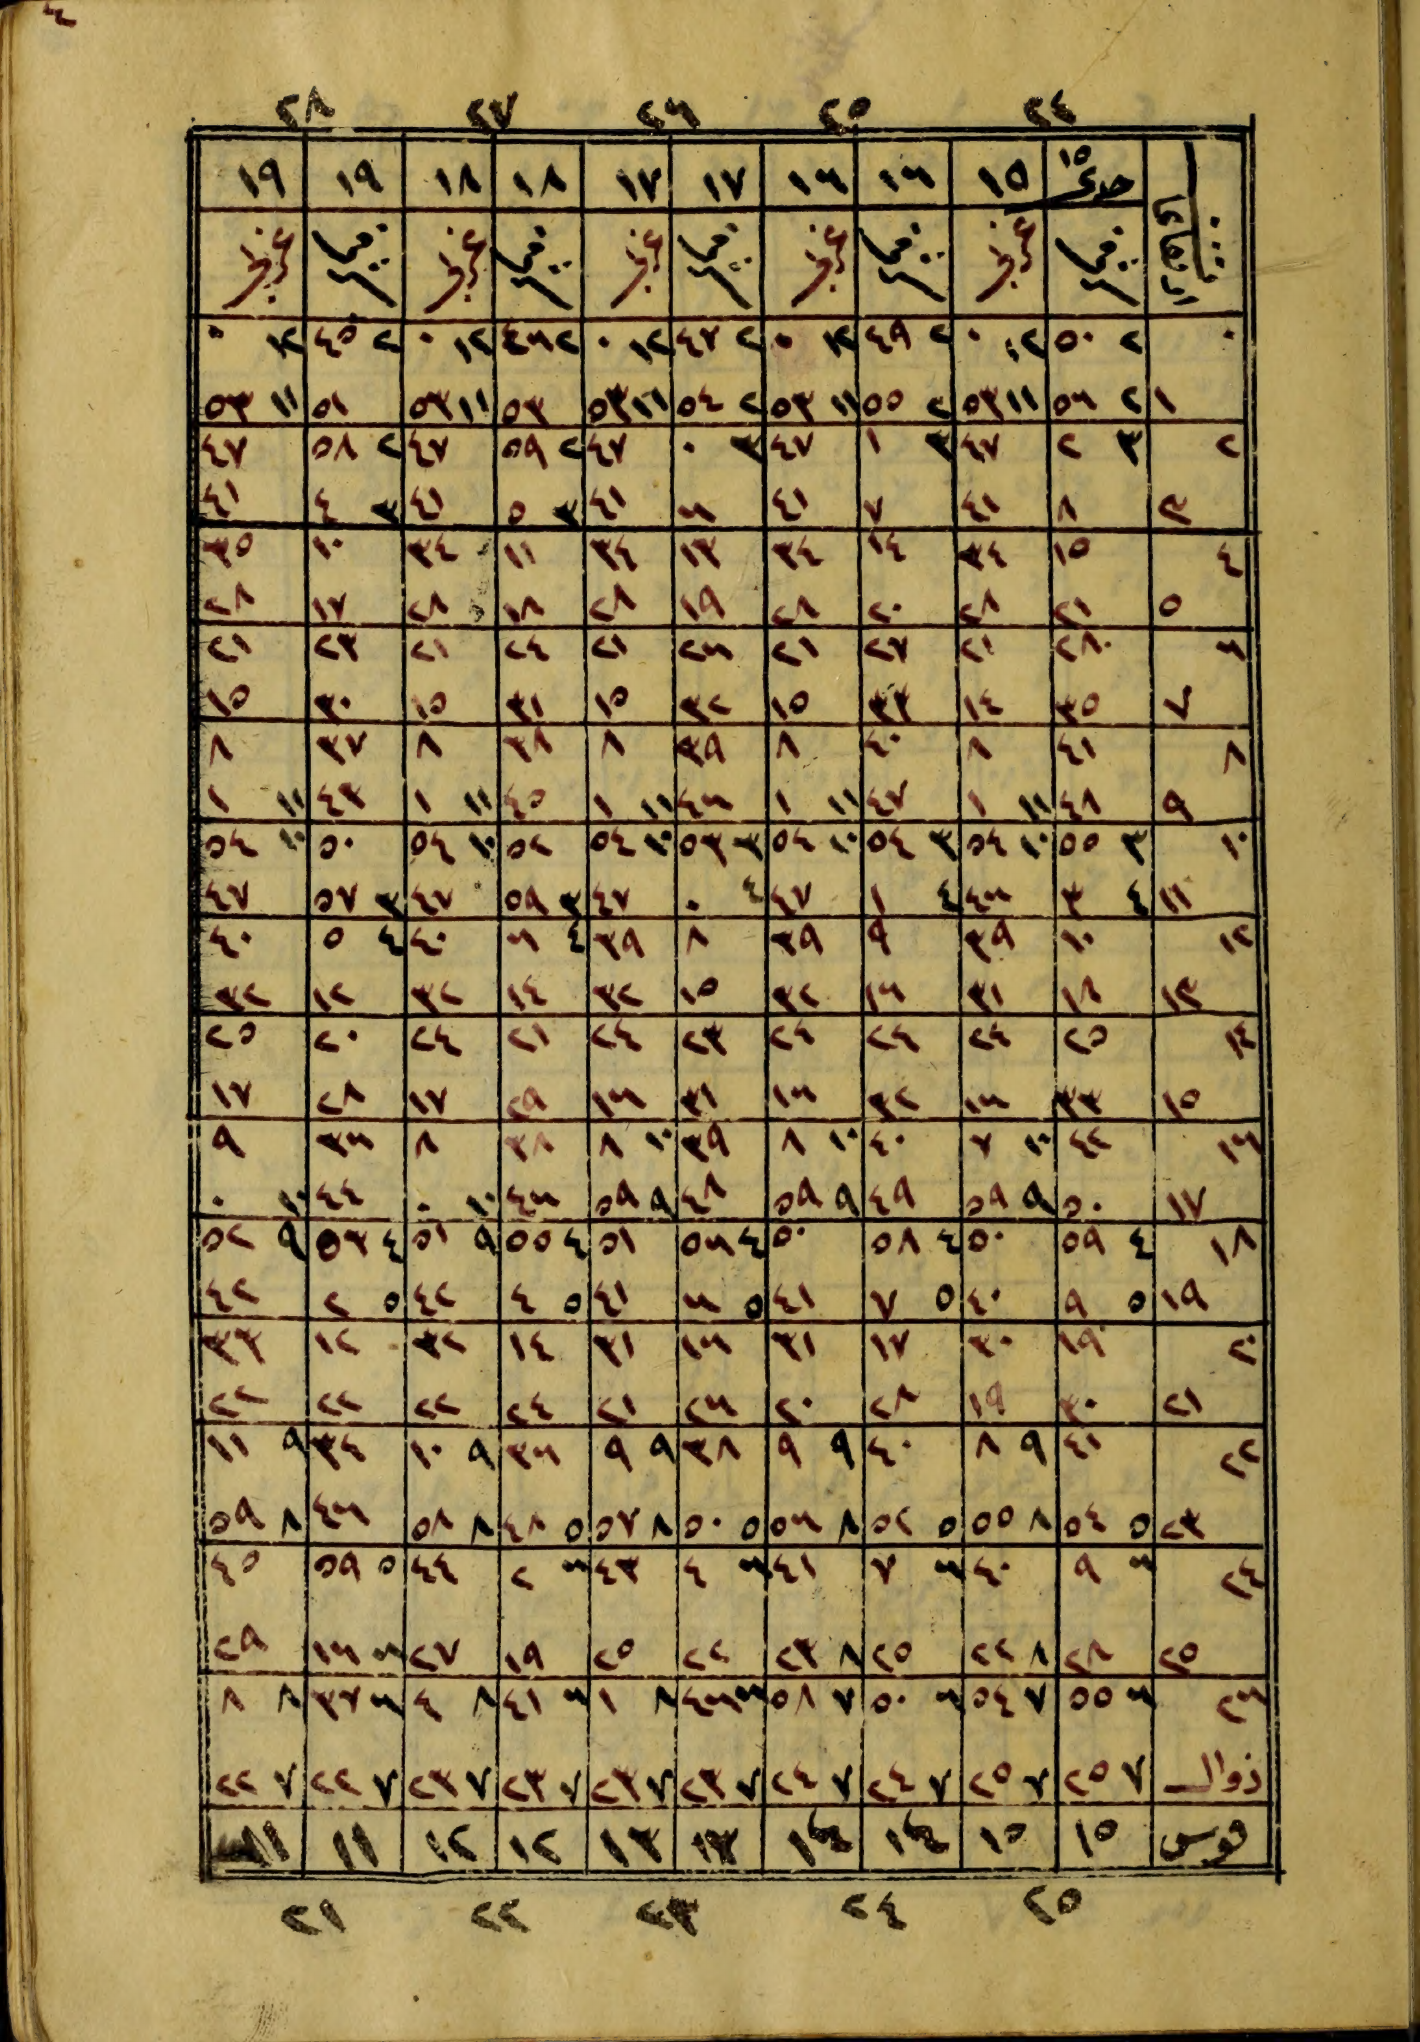 ٢٤ ٢٥ ٢٦ ٢٧ ٢٨
جدي ١٥ ١٥ ١٦ ١٦ ١٧ ١٧ ١٨ ١٨ ١٩ ١٩
٠ ٢ ٥٠ ١٢ ٠ ٢ ٤٩ ١٢ ٠ ٢ ٤٧ ١٢ ٠ ٢ ٤٦ ١٢ ٠ ٢ ٤٥ ١٢ ٠
١ ٢ ٥٦ ١١ ٥٣ ٢ ٥٥ ١١ ٥٣ ٢ ٥٤ ١١ ٥٣ ٥٣ ١١ ٥٣ ٥١ ١١ ٥٣
٢ ٣ ٢ ٤٧ ٣ ١ ٤٧ ٣ ٠ ٤٧ ٢ ٥٩ ٤٧ ٢ ٥٨ ٤٧
٣ ٨ ٤١ ٧ ٤١ ٦ ٤١ ٣ ٥ ٤١ ٣ ٤ ٤١
٤ ١٥ ٣٤ ١٤ ٣٤ ١٣ ٣٤ ١١ ٣٤ ١٠ ٣٥
٥ ٢١ ٢٨ ٢٠ ٢٨ ١٩ ٢٨ ١٨ ٢٨ ١٧ ٢٨
٦ ٢٨ ٢١ ٢٧ ٢١ ٢٦ ٢١ ٢٤ ٢١ ٢٣ ٢١
٧ ٣٥ ١٤ ٣٣ ١٥ ٣٢ ١٥ ٣١ ١٥ ٣٠ ١٥
٨ ٤١ ٨ ٤٠ ٨ ٣٩ ٨ ٣٨ ٨ ٣٧ ٨
٩ ٤٨ ١١ ١ ٤٧ ١١ ١ ٤٦ ١١ ١ ٤٥ ١١ ١ ٤٣ ١١ ١
١٠ ٣ ٥٥ ١٠ ٥٤ ٣ ٥٤ ١٠ ٥٤ ٣ ٥٣ ١٠ ٥٤ ٥٢ ١٠ ٥٤ ٥٠ ١٠ ٥٤
١١ ٤ ٣ ٤٦ ٤ ١ ٤٧ ٤ ٠ ٤٧ ٣ ٥٩ ٤٧ ٣ ٥٧ ٤٧
١٢ ١٠ ٣٩ ٩ ٣٩ ٨ ٣٩ ٤ ٦ ٤٠ ٤ ٥ ٤٠
١٣ ١٨ ٣١ ١٦ ٣٢ ١٥ ٣٢ ١٤ ٣٢ ١٢ ٣٢
١٤ ٢٥ ٢٤ ٢٤ ٢٤ ٢٣ ٢٤ ٢١ ٢٤ ٢٠ ٢٥
١٥ ٣٣ ١٦ ٣٢ ١٦ ٣١ ١٦ ٢٩ ١٧ ٢٨ ١٧
١٦ ٤٢ ١٠ ٧ ٤٠ ١٠ ٨ ٣٩ ١٠ ٨ ٣٨ ٨ ٣٦ ٩
١٧ ٥٠ ٩ ٥٩ ٤٩ ٩ ٥٩ ٤٨ ٩ ٥٩ ٤٦ ١٠ ٠ ٤٤ ١٠ ٠
١٨ ٤ ٥٩ ٥٠ ٤ ٥٨ ٥٠ ٤ ٥٦ ٥١ ٤ ٥٥ ٩ ٥١ ٤ ٥٣ ٩ ٥٢
١٩ ٥ ٩ ٤٠ ٥ ٧ ٤١ ٥ ٦ ٤١ ٥ ٤ ٤٢ ٥ ٢ ٤٢
٢٠ ١٩ ٣٠ ١٧ ٣١ ١٦ ٣١ ١٤ ٣٢ ١٢ ٣٣
٢١ ٣٠ ١٩ ٢٨ ٢٠ ٢٦ ٢١ ٢٤ ٢٢ ٢٢ ٢٢
٢٢ ٤١ ٩ ٨ ٤٠ ٩ ٩ ٣٨ ٩ ٩ ٣٦ ٩ ١٠ ٣٤ ٩ ١١
٢٣ ٥ ٥٤ ٨ ٥٥ ٥ ٥٢ ٨ ٥٦ ٥ ٥٠ ٨ ٥٧ ٥ ٤٨ ٨ ٥٨ ٤٦ ٨ ٥٩
٢٤ ٦ ٩ ٤٠ ٦ ٧ ٤١ ٦ ٤ ٤٣ ٦ ٢ ٤٤ ٥ ٥٩ ٤٥
٢٥ ٢٨ ٨ ٢٢ ٢٥ ٨ ٢٣ ٢٢ ٢٥ ١٩ ٢٧ ٦ ١٦ ٢٩
٢٦ ٦ ٥٥ ٧ ٥٤ ٦ ٥٠ ٧ ٥٨ ٦ ٤٦ ٨ ١ ٦ ٤١ ٨ ٤ ٦ ٣٧ ٨ ٨
زوال ٧ ٢٥ ٧ ٢٥ ٧ ٢٤ ٧ ٢٤ ٧ ٢٣ ٧ ٢٣ ٧ ٢٣ ٧ ٢٣ ٧ ٢٢ ٧ ٢٢
قوس ١٥ ١٥ ١٤ ١٤ ١٣ ١٣ ١٢ ١٢ ١١ ١١
٢٥ ٢٤ ٢٣ ٢٢ ٢١